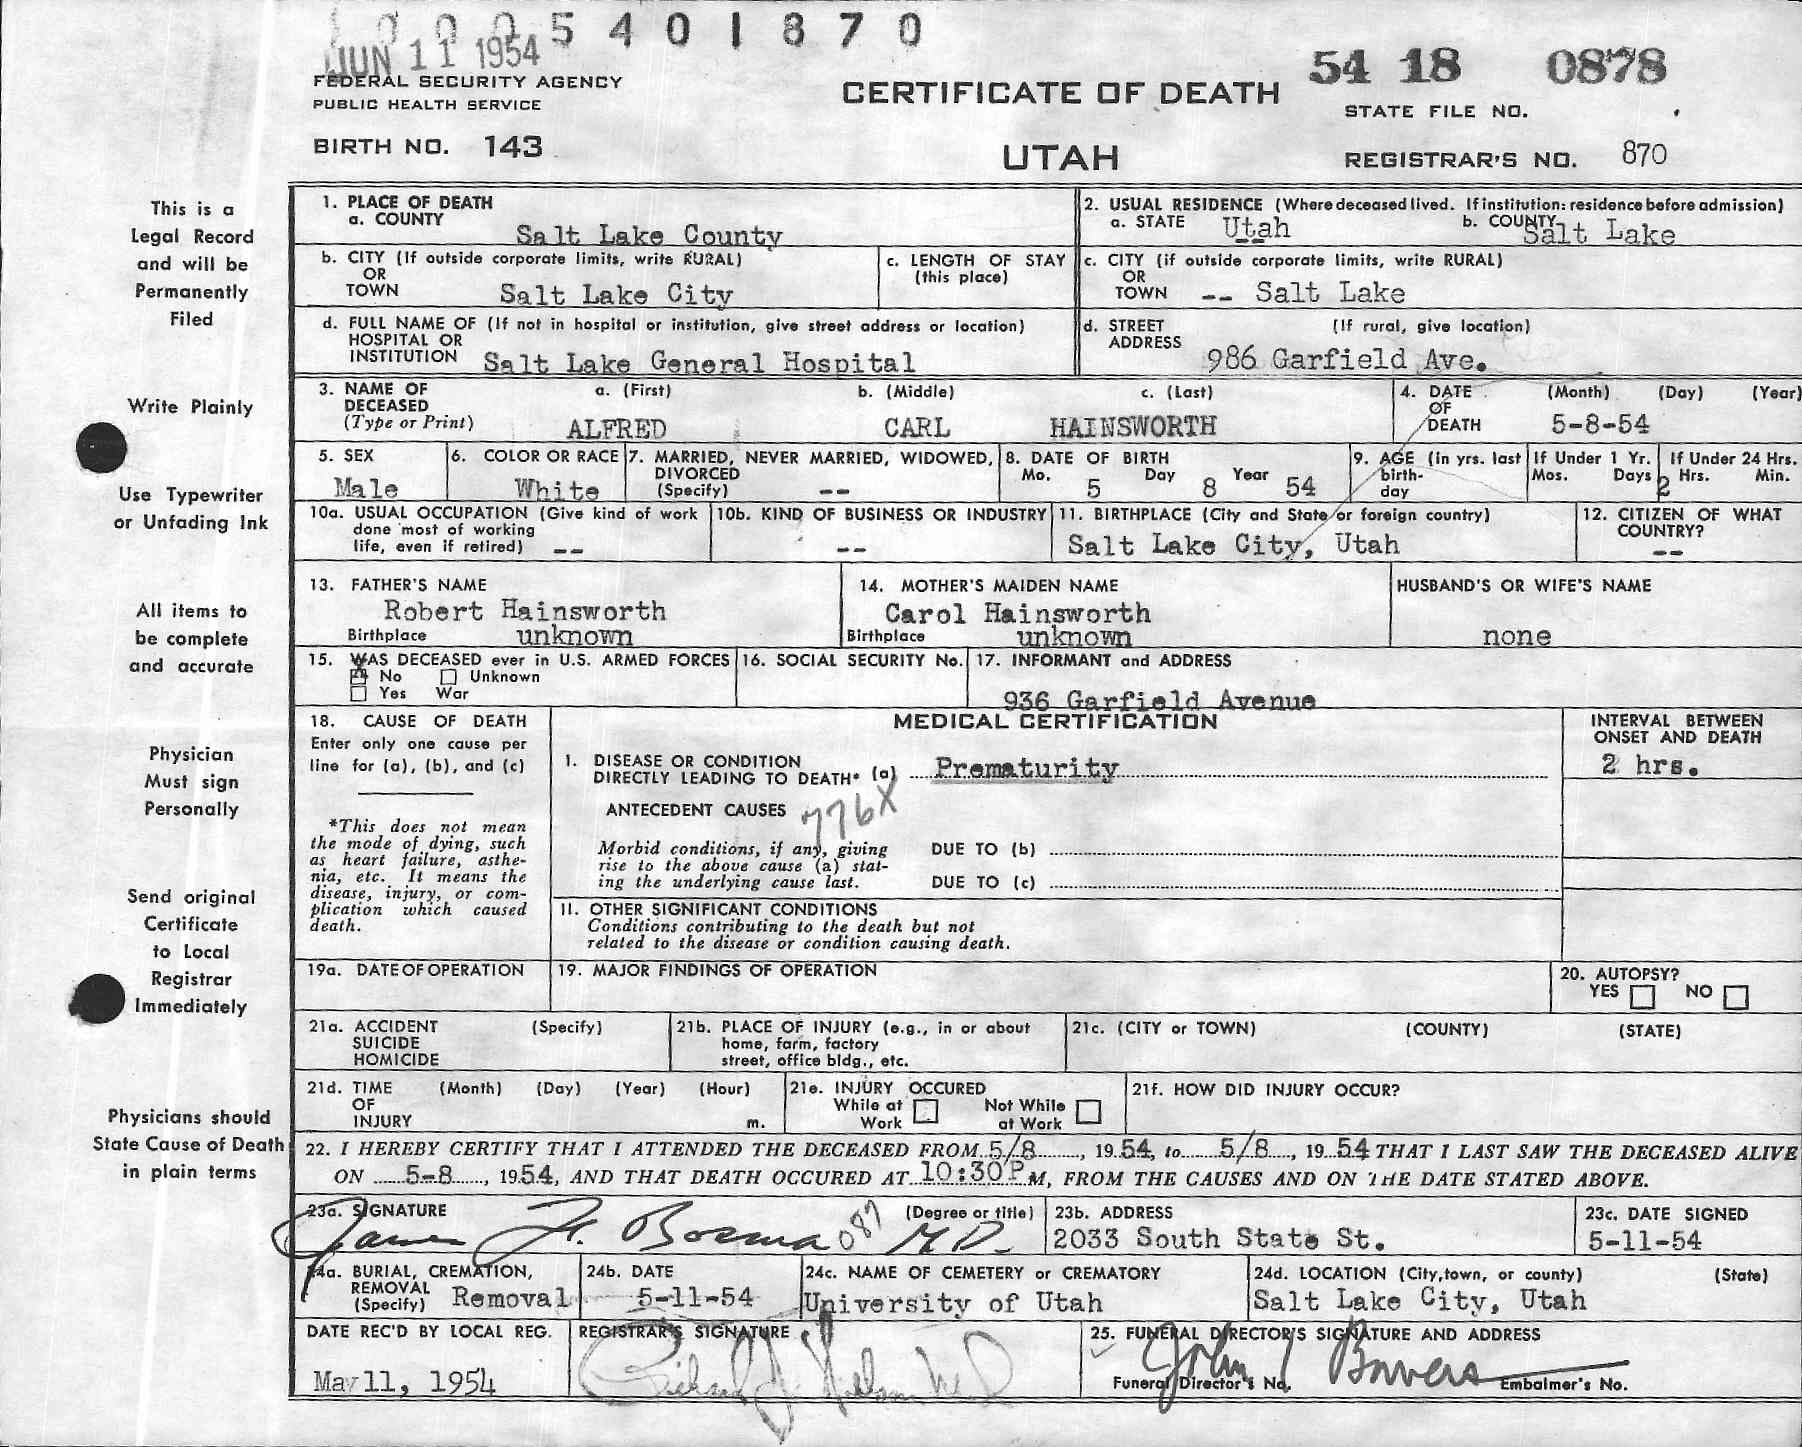 0005401870
JUN 11 1954
FEDERAL SECURITY AGENCY
PUBLIC HEALTH SERVICE
BIRTH NO. 143
CERTIFICATE OF DEATH
UTAH
54 18 0878
STATE FILE NO.
REGISTRAR'S NO. 870
This is a
Legal Record
and will be
Permanently
Filed
Write Plainly
Use Typewriter
or Unfading Ink
All items to
be complete
and accurate
Physician
Must sign
Personally
Send original
Certificate
to Local
Registrar
Immediately
Physicians should
State Cause of Death
in plain terms
1. PLACE OF DEATH
a. COUNTY
Salt Lake County
2. USUAL RESIDENCE (Where deceased lived. If institution: residence before admission)
a. STATE Utah b. COUNTY Salt Lake
b. CITY (If outside corporate limits, write RURAL)
OR
TOWN Salt Lake City
c. LENGTH OF STAY
(this place)
c. CITY (if outside corporate limits, write RURAL)
OR
TOWN -- Salt Lake
d. FULL NAME OF (If not in hospital or institution, give street address or location)
HOSPITAL OR
INSTITUTION Salt Lake General Hospital
d. STREET (If rural, give location)
ADDRESS
986 Garfield Ave.
3. NAME OF a. (First) b. (Middle) c. (Last)
DECEASED
(Type or Print) ALFRED CARL HAINSWORTH
4. DATE (Month) (Day) (Year)
OF
DEATH 5-8-54
5. SEX
Male
6. COLOR OR RACE
White
7. MARRIED, NEVER MARRIED, WIDOWED,
DIVORCED
(Specify) --
8. DATE OF BIRTH
Mo. 5 Day 8 Year 54
9. AGE (in yrs. last
birth-
day
If Under 1 Yr.
Mos. Days
If Under 24 Hrs.
2 Hrs. Min.
10a. USUAL OCCUPATION (Give kind of work
done most of working
life, even if retired) --
10b. KIND OF BUSINESS OR INDUSTRY
--
11. BIRTHPLACE (City and State or foreign country)
Salt Lake City, Utah
12. CITIZEN OF WHAT
COUNTRY?
--
13. FATHER'S NAME
Robert Hainsworth
Birthplace unknown
14. MOTHER'S MAIDEN NAME
Carol Hainsworth
Birthplace unknown
HUSBAND'S OR WIFE'S NAME
none
15. WAS DECEASED ever in U.S. ARMED FORCES
No Unknown
Yes War
16. SOCIAL SECURITY No.
17. INFORMANT and ADDRESS
936 Garfield Avenue
18. CAUSE OF DEATH
Enter only one cause per
line for (a), (b), and (c)
*This does not mean
the mode of dying, such
as heart failure, asthe-
nia, etc. It means the
disease, injury, or com-
plication which caused
death.
MEDICAL CERTIFICATION
1. DISEASE OR CONDITION
DIRECTLY LEADING TO DEATH* (a) Prematurity
ANTECEDENT CAUSES 776X
Morbid conditions, if any, giving
rise to the above cause (a) stat-
ing the underlying cause last.
DUE TO (b)
DUE TO (c)
11. OTHER SIGNIFICANT CONDITIONS
Conditions contributing to the death but not
related to the disease or condition causing death.
INTERVAL BETWEEN
ONSET AND DEATH
2 hrs.
19a. DATE OF OPERATION
19. MAJOR FINDINGS OF OPERATION
20. AUTOPSY?
YES NO
21a. ACCIDENT (Specify)
SUICIDE
HOMICIDE
21b. PLACE OF INJURY (e.g., in or about
home, farm, factory
street, office bldg., etc.
21c. (CITY or TOWN) (COUNTY) (STATE)
21d. TIME (Month) (Day) (Year) (Hour)
OF
INJURY m.
21e. INJURY OCCURED
While at Not While
Work at Work
21f. HOW DID INJURY OCCUR?
22. I HEREBY CERTIFY THAT I ATTENDED THE DECEASED FROM 5/8, 1954, to 5/8, 1954 THAT I LAST SAW THE DECEASED ALIVE
ON 5-8, 1954, AND THAT DEATH OCCURED AT 10:30P M, FROM THE CAUSES AND ON THE DATE STATED ABOVE.
23a. SIGNATURE (Degree or title)
James H. Bosma 087 M.D.
23b. ADDRESS
2033 South State St.
23c. DATE SIGNED
5-11-54
24a. BURIAL, CREMATION,
REMOVAL
(Specify) Removal
24b. DATE
5-11-54
24c. NAME OF CEMETERY or CREMATORY
University of Utah
24d. LOCATION (City, town, or county) (State)
Salt Lake City, Utah
DATE REC'D BY LOCAL REG.
May 11, 1954
REGISTRAR'S SIGNATURE
25. FUNERAL DIRECTOR'S SIGNATURE AND ADDRESS
John Bowers
Funeral Director's No. Embalmer's No.